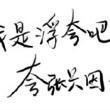 我是浮夸吧
夸张只因